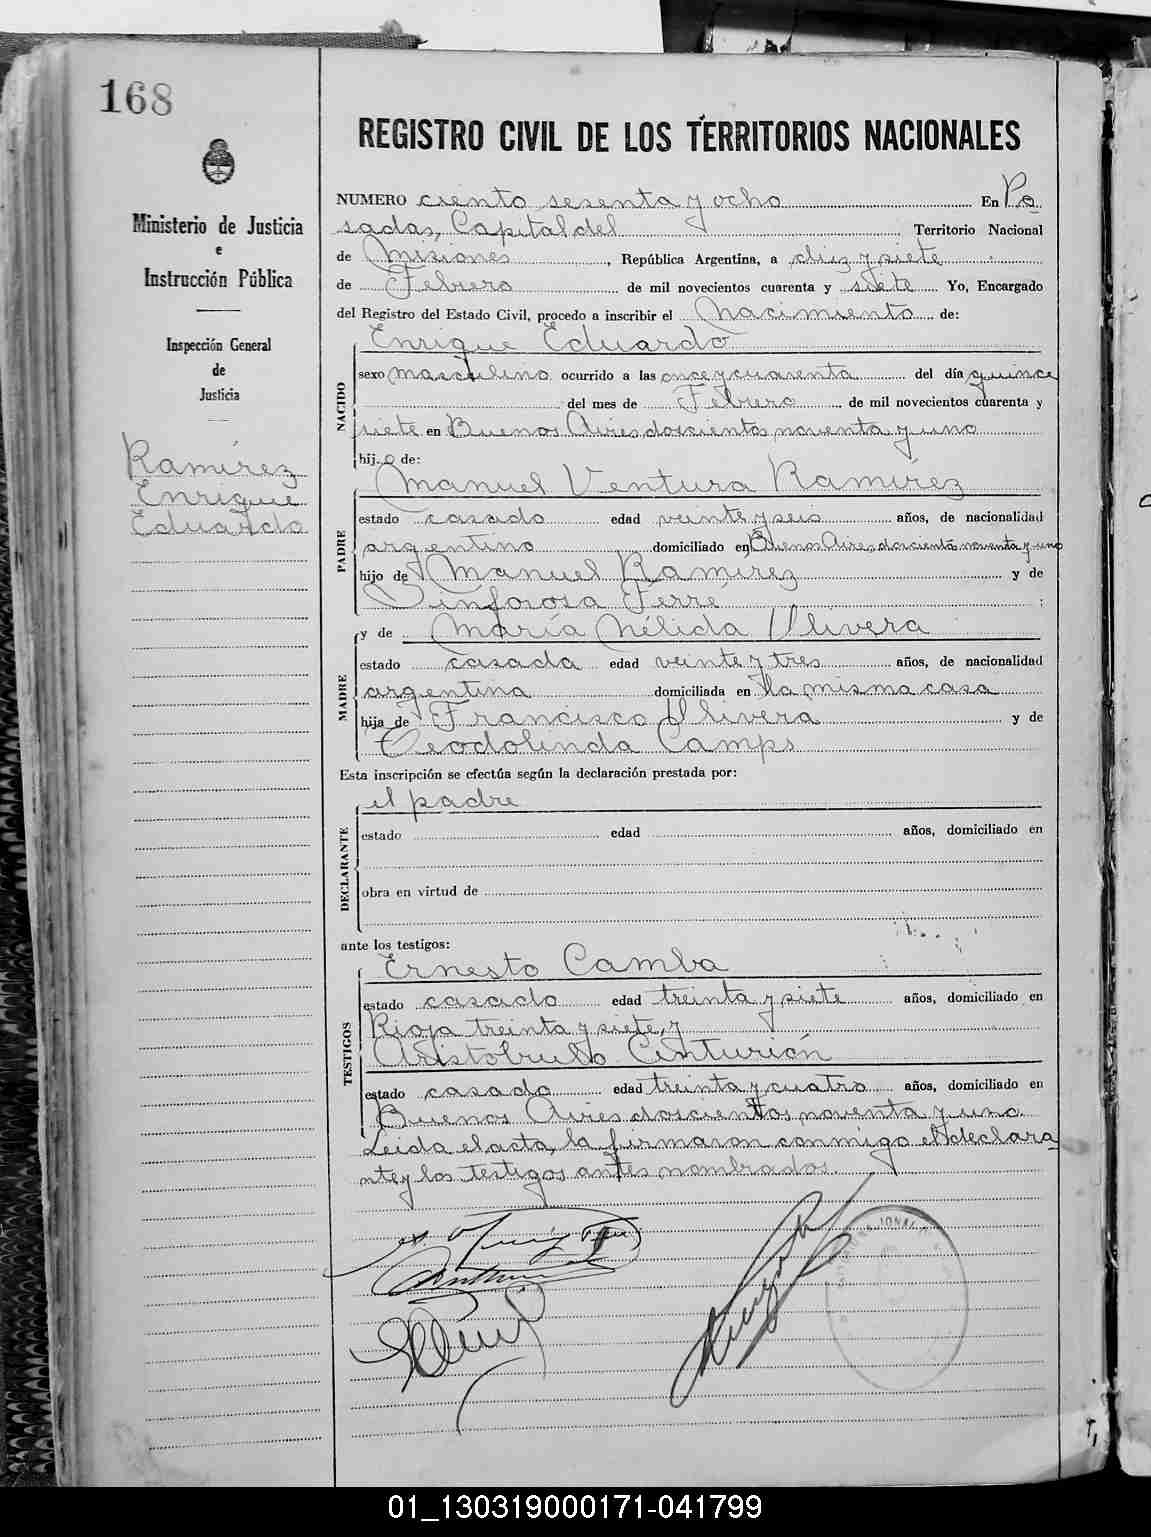 168
Ministerio de Justicia
e
Instrucción Pública
Inspección General
de
Justicia
Ramírez
Enrique
Eduardo
REGISTRO CIVIL DE LOS TERRITORIOS NACIONALES
NUMERO ciento sesenta y ocho En Po
sadas, Capital del Territorio Nacional
de Misiones, República Argentina, a diez y siete
de Febrero de mil novecientos cuarenta y siete Yo, Encargado
del Registro del Estado Civil, procedo a inscribir el Nacimiento de:
Enrique Eduardo
NACIDO
sexo masculino ocurrido a las once y cuarenta del día quince
del mes de Febrero, de mil novecientos cuarenta y
siete en Buenos Aires doscientos noventa y uno
hijo de:
Manuel Ventura Ramírez
PADRE
estado casado edad veinte y seis años, de nacionalidad
argentino domiciliado en Buenos Aires doscientos noventa y uno
hijo de Manuel Ramírez y de
Sinforosa Ferré ;
y de María Nélida Ulivera
MADRE
estado casada edad veinte y tres años, de nacionalidad
argentina domiciliada en la misma casa
hija de Francisco Ulivera y de
Teodolinda Camps
Esta inscripción se efectúa según la declaración prestada por:
el padre
DECLARANTE
estado edad años, domiciliado en
obra en virtud de
ante los testigos:
Ernesto Camba
TESTIGOS
estado casado edad treinta y siete años, domiciliado en
Rioja treinta y siete, y
Aristobulo Centurión
estado casado edad treinta y cuatro años, domiciliado en
Buenos Aires doscientos noventa y uno.
Leida el acta, la firmaron conmigo el declara
nte y los testigos antes nombrados.
01_130319000171-041799